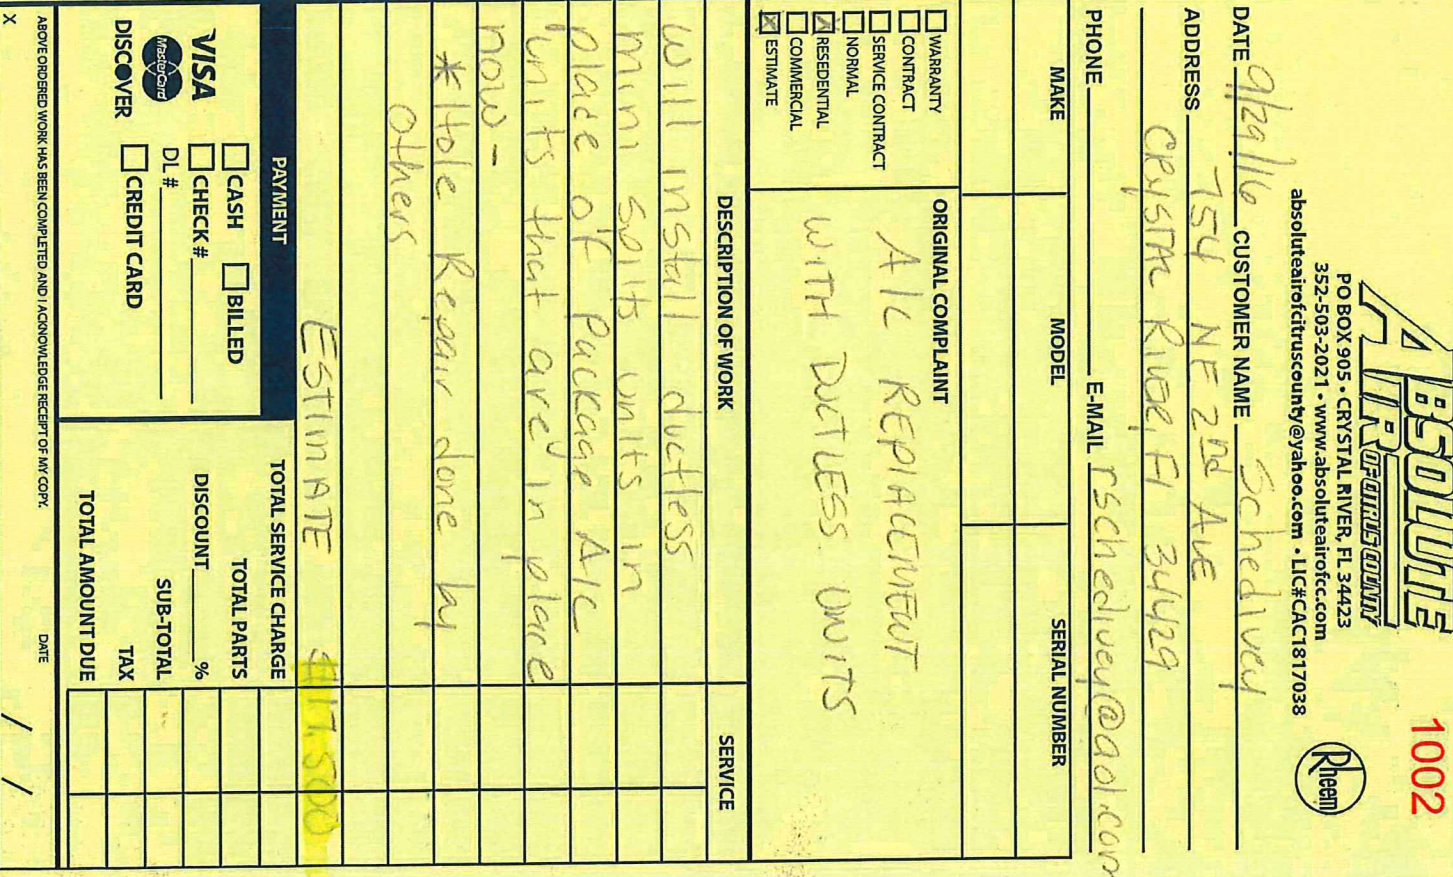 1002
ABSOLUTE
AIR OF CITRUS COUNTY
Rheem
PO BOX 905 • CRYSTAL RIVER, FL 34423
352-503-2021 • www.absoluteairofcc.com
absoluteairofcitruscounty@yahoo.com • LIC#CAC1817038
DATE 9/29/16 CUSTOMER NAME Schedivey
ADDRESS 754 NE 2nd AVE
CRYSTAL RIVER, Fl 34429
PHONE E-MAIL rschedivey@aol.com
MAKE MODEL SERIAL NUMBER
WARRANTY
CONTRACT
SERVICE CONTRACT
NORMAL
X RESEDENTIAL
COMMERCIAL
X ESTIMATE
ORIGINAL COMPLAINT
A/C REPLACEMENT
WITH DUCTLESS UNITS
DESCRIPTION OF WORK SERVICE
Will install ductless
mini splits units in
place of Package A/C
units that are in place
now-
*Hole Repair done by
others
ESTIMATE $17,500
PAYMENT
CASH BILLED
CHECK #
DL #
CREDIT CARD
VISA
MasterCard
DISCOVER
TOTAL SERVICE CHARGE
TOTAL PARTS
DISCOUNT %
SUB-TOTAL
TAX
TOTAL AMOUNT DUE
ABOVE ORDERED WORK HAS BEEN COMPLETED AND I ACKNOWLEDGE RECEIPT OF MY COPY.
X DATE / /